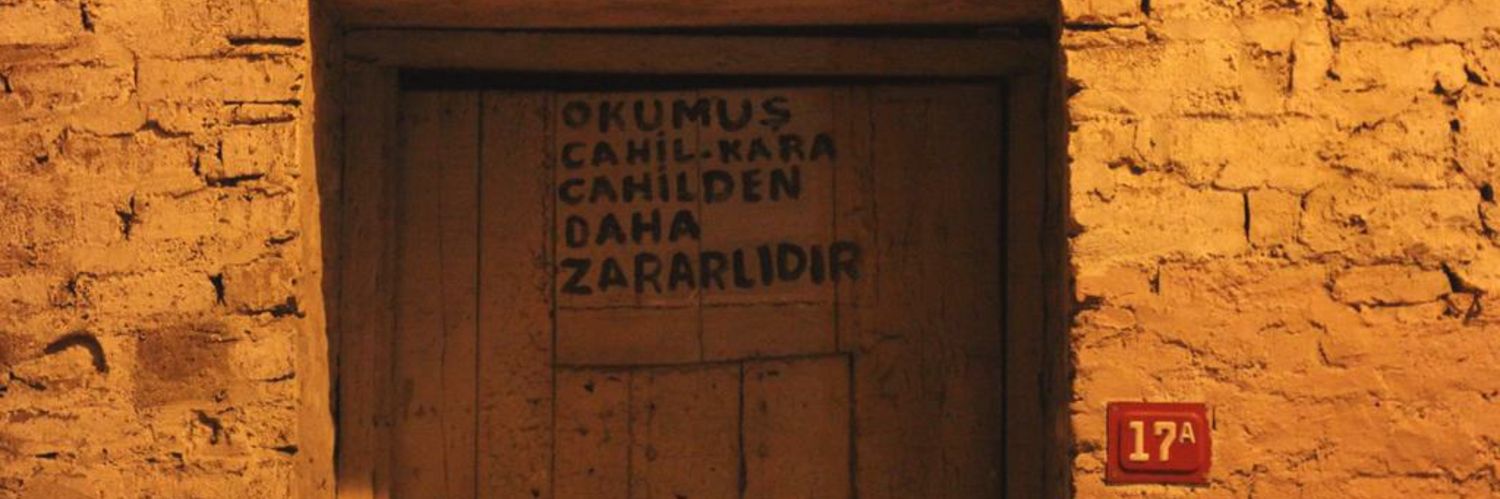 OKUMUŞ
CAHİL-KARA
CAHİLDEN
DAHA
ZARARLIDIR
17A